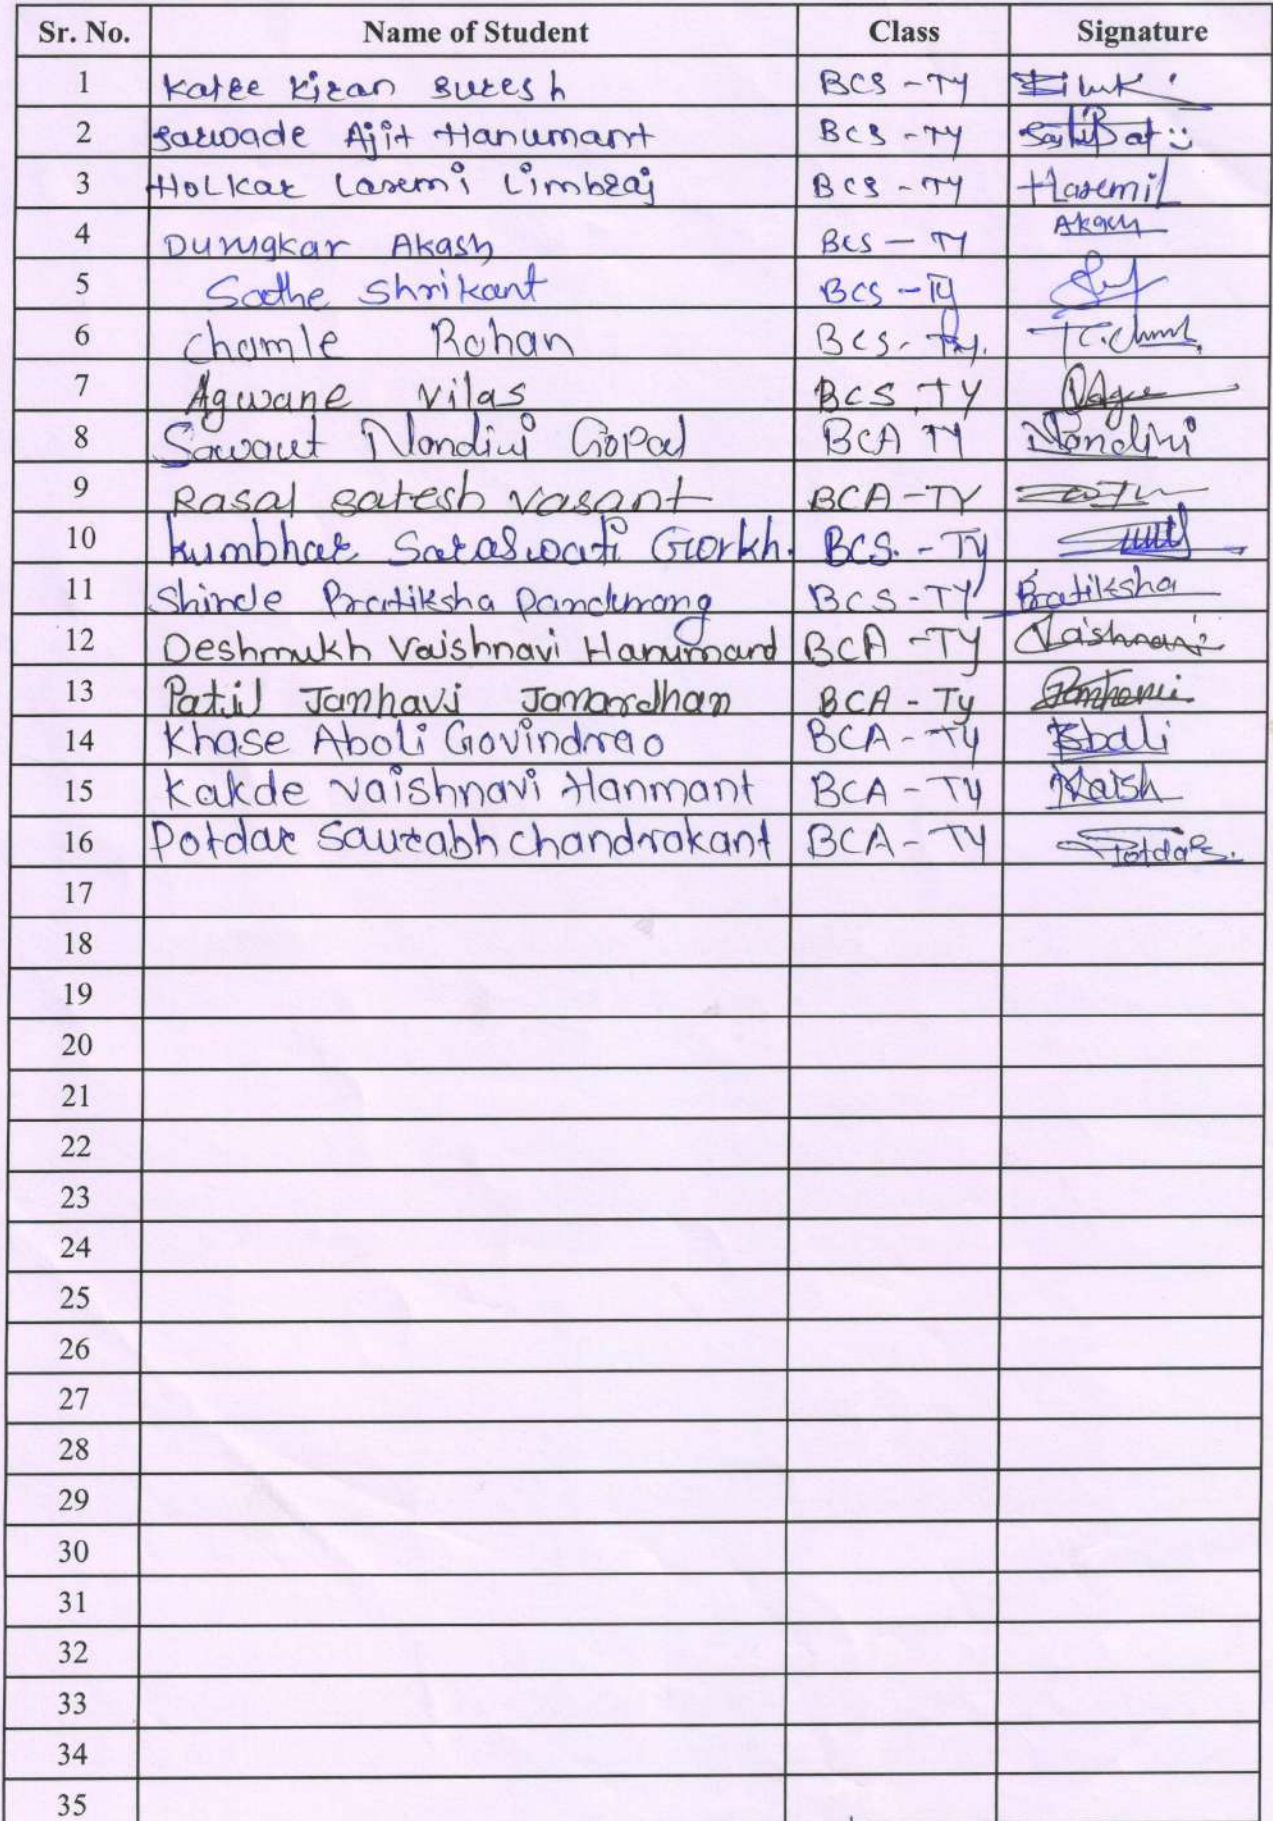 Sr. No. Name of Student Class Signature
1 Katre Kiran Suresh BCS - TY
2 Sarwade Ajit Hanumant BCS - TY
3 Holkar Laxmi Limbraj BCS - TY
4 Durugkar Akash BCS - TY Akash
5 Sathe Shrikant BCS - TY
6 Chamle Rohan BCS - TY.
7 Agwane Vilas BCS TY
8 Sawant Nandini Gopal BCA TY Nandini
9 Rasal Satesh Vasant BCA - TY
10 Kumbhar Saraswati Gorkh. BCS. - TY
11 Shinde Pratiksha Pandurang BCS - TY Pratiksha
12 Deshmukh Vaishnavi Hanumand BCA - TY Vaishnavi
13 Patil Janhavi Janardhan BCA - TY
14 Khase Aboli Govindrao BCA - TY
15 Kakde Vaishnavi Hanmant BCA - TY Vaish
16 Potdar Saurabh Chandrakant BCA - TY Potdar.
17
18
19
20
21
22
23
24
25
26
27
28
29
30
31
32
33
34
35